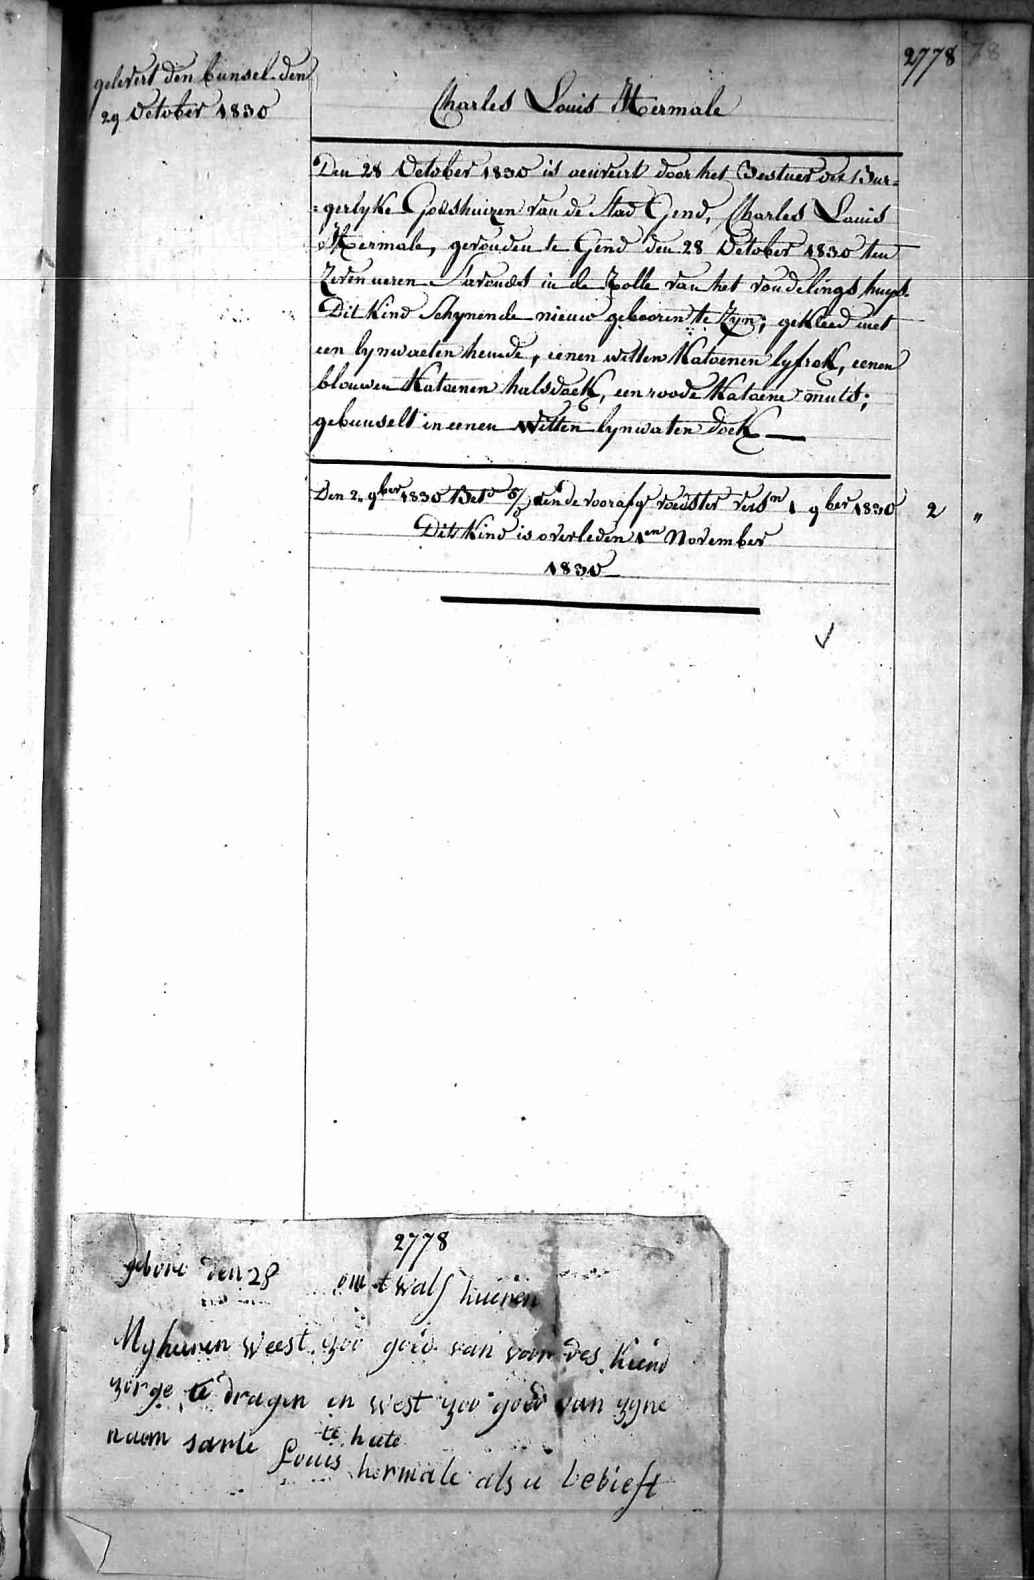 2778 78
gelevert den bunsel den
29 October 1830
Charles Louis Hermale
Den 28 October 1830 is aenveirt door het Bestuer der Bur=
=gerlyke Godshuizen van de Stad Gend, Charles Louis
Hermale, gevonden te Gend den 28 October 1830 ten
Zeven ueren S'avonds in de Rolle van het vondelings huys
Dit Kind Schynende nieuw gebooren te Zyn; gekleed met
een lynwaeten hemde, eenen witten Katoenen lyfrok, eenen
blouwen Katoenen halsdoek, een roode Katoene muts;
gebuuselt in eenen Witten lynwaten doek
Den 2 9ber 1830 Bet. aen de voorafg voedster 1 9ber 1830 2 "
Dit Kind is overleden 1en November
1830
2778
gebore den 28 om twalf hueren
Myheeren weest zoo goed van voor des kiend
zorge te dragen en west zoo goed van zyne
naem sarle te heete
Louis hermale als u beblieft